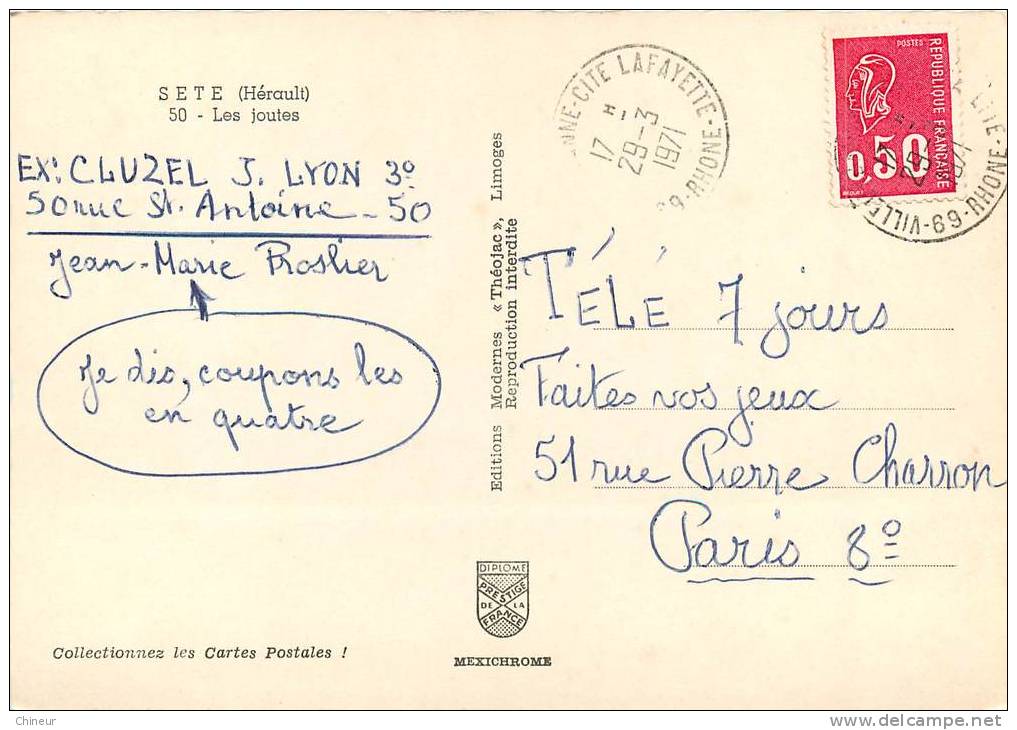 SETE (Hérault)
50 - Les joutes
EX: CLUZEL J. LYON 3º
50 rue St. Antoine - 50
Jean-Marie Proslier
Je dis, coupons les
en quatre
Editions Modernes « Théojac », Limoges
Reproduction interdite
NNE-CITE LAFAYETTE-
69-RHONE
17 H
29-3
1971
POSTES
REPUBLIQUE FRANÇAISE
0,50
CITE
69-RHONE
29-
1971
TÉLÉ 7 jours
Faites vos jeux
51 rue Pierre Charron
Paris 8º
DIPLOME
PRESTIGE
DE LA
FRANCE
MEXICHROME
Collectionnez les Cartes Postales !
Chineur
www.delcampe.net